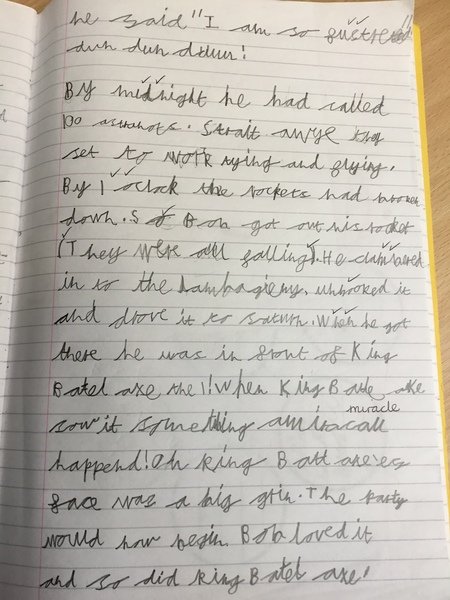 he said "I am so
duh duh duuu!
By midnight he had called
100 Strait awye they
set to work trying and
By 1 oclock the rockets had broken
down. So Bob got out his rocket
(They were all falling). He clambered
in to the Lambagieny, unhooked it
and drove it to saturn. When he got
there he was in front of King
Batel axe the 1! When King Batle axe
sow it something amiracall
miracle
happend! Oh king Batl axe'es
face was a big grin. The Party
would now begin. Bob loved it
and so did king Batel axe!